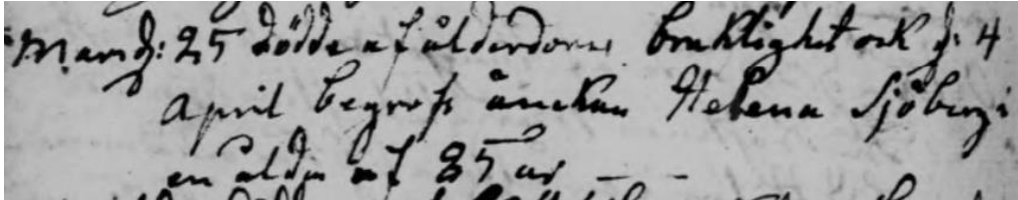 Mart d: 25 dödde af ålderdoms bräklighet ock d: 4
april begrofs änckan Helena Sjöberg i
en ålder af 85 år - -